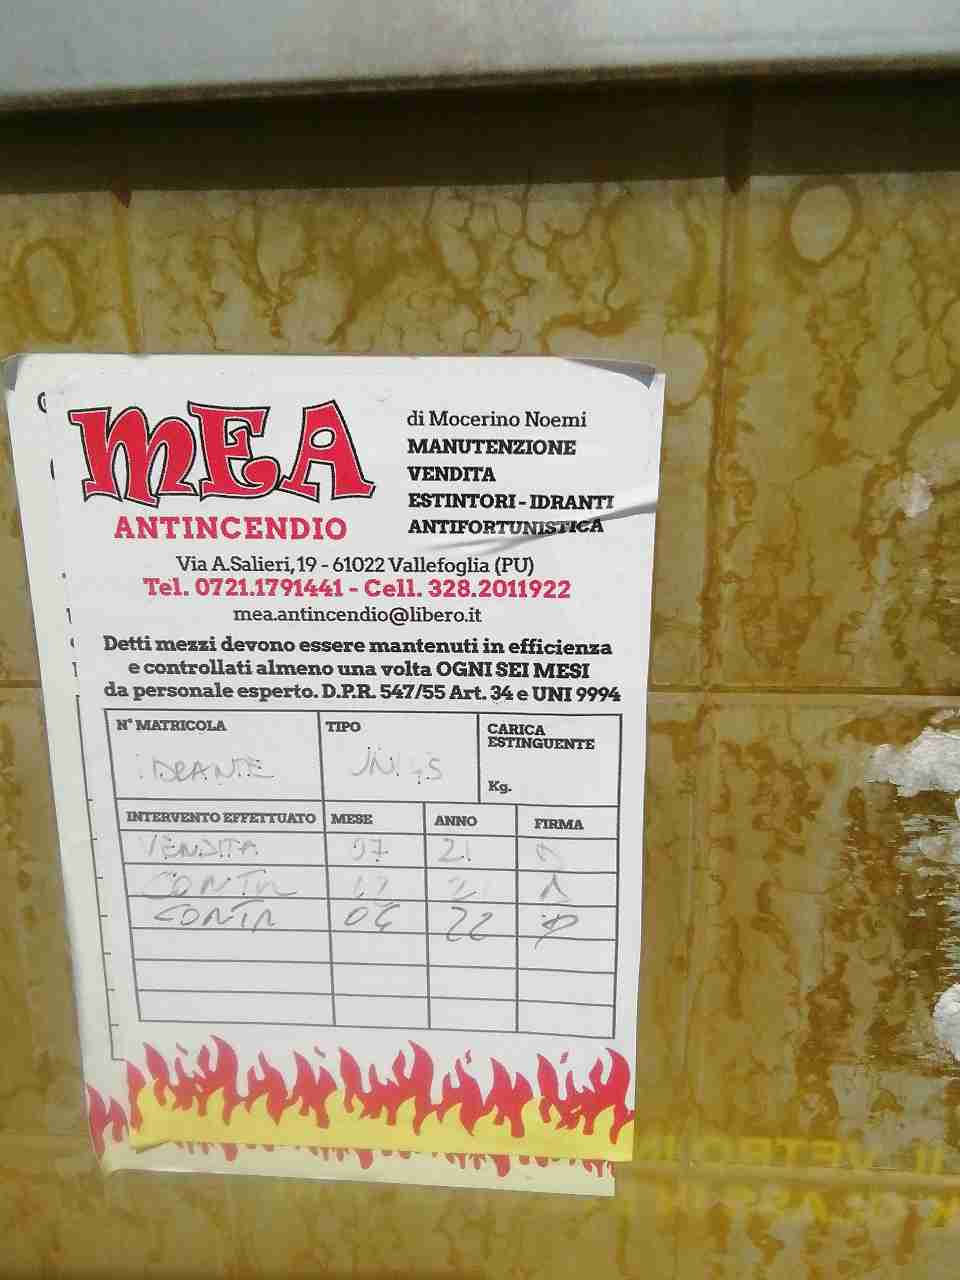 MEA
ANTINCENDIO
di Mocerino Noemi
MANUTENZIONE
VENDITA
ESTINTORI - IDRANTI
ANTIFORTUNISTICA
Via A.Salieri, 19 - 61022 Vallefoglia (PU)
Tel. 0721.1791441 - Cell. 328.2011922
mea.antincendio@libero.it
Detti mezzi devono essere mantenuti in efficienza
e controllati almeno una volta OGNI SEI MESI
da personale esperto. D.P.R. 547/55 Art. 34 e UNI 9994
N° MATRICOLA TIPO CARICA ESTINGUENTE
IDRANTE UNI 45 Kg.
INTERVENTO EFFETTUATO MESE ANNO FIRMA
VENDITA 07 21
CONTR 12 21
CONTR 06 22
IL VETRO IN